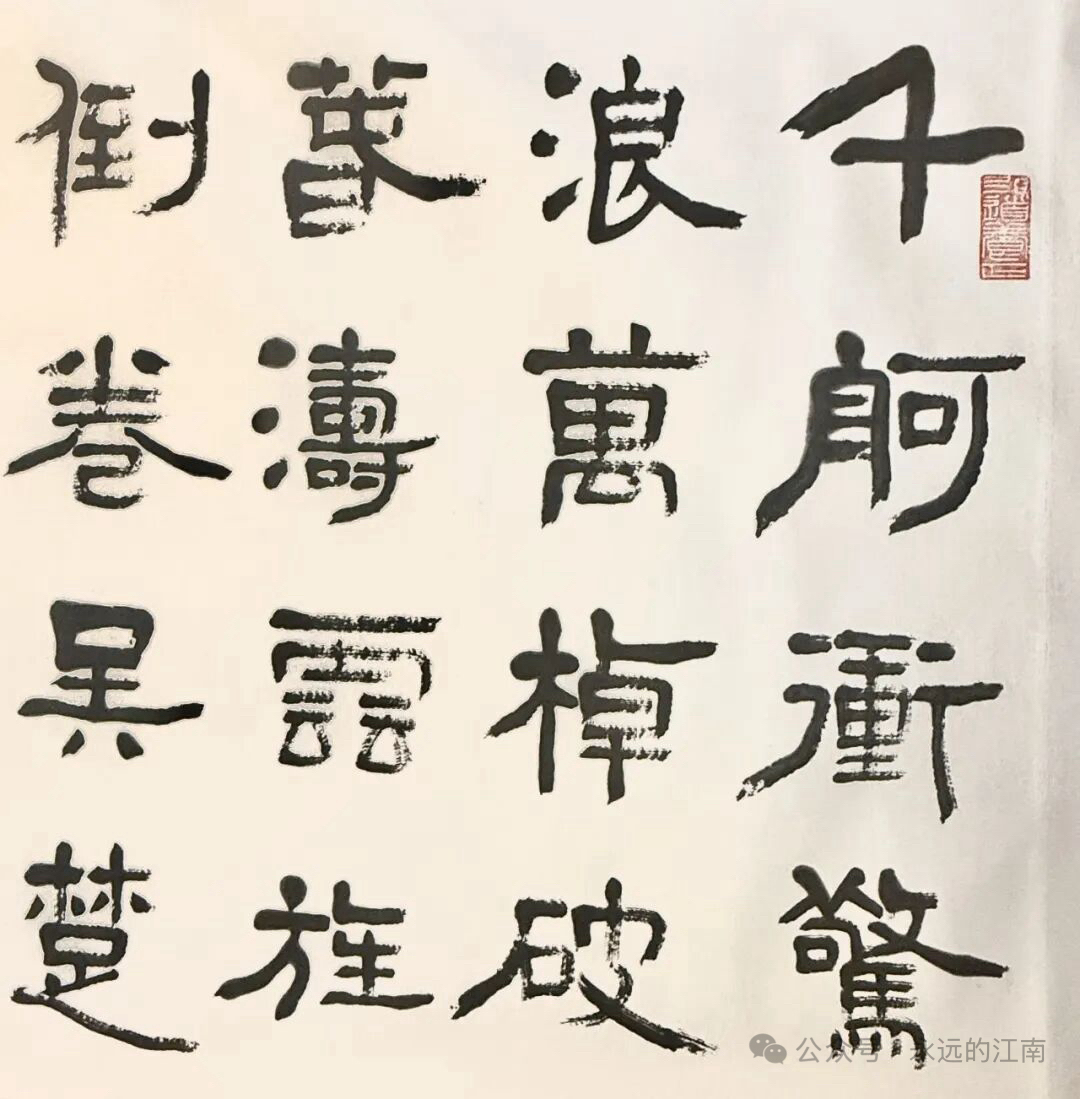 千舸衝驚
浪萬棹破
暮濤雲旌
倒卷吳楚
公众号·永远的江南